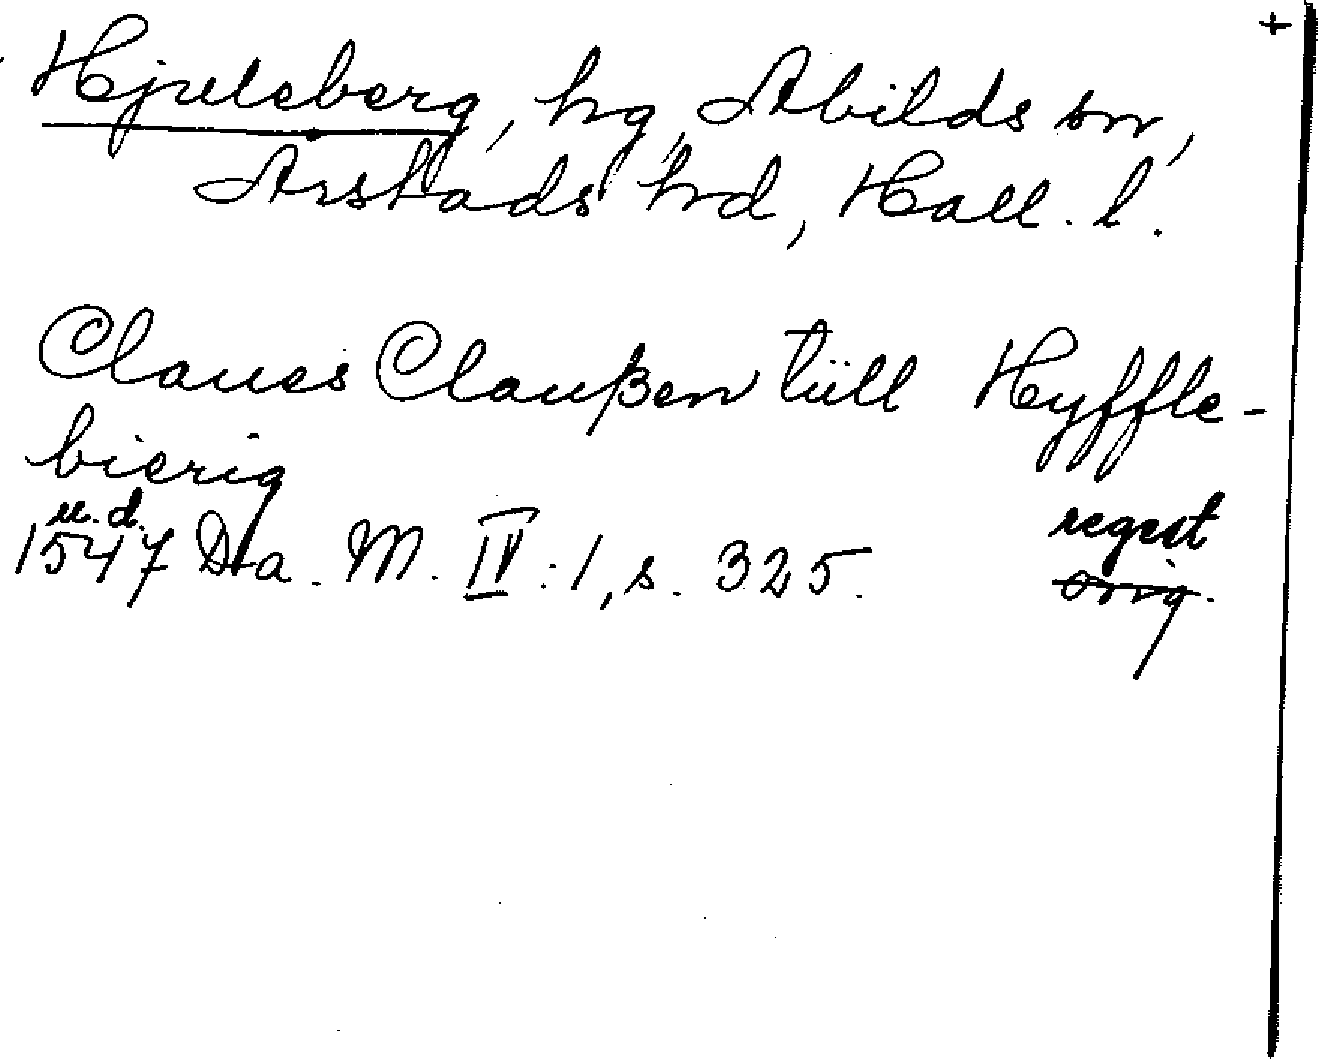 +
Hjuleberg, hg, Abilds sn,
Årstads hd, Hall. l.
Claues Claußen tüll Hyffle-
bierig
u. d. regist
1547 Da. M. IV:1, s. 325. orig.